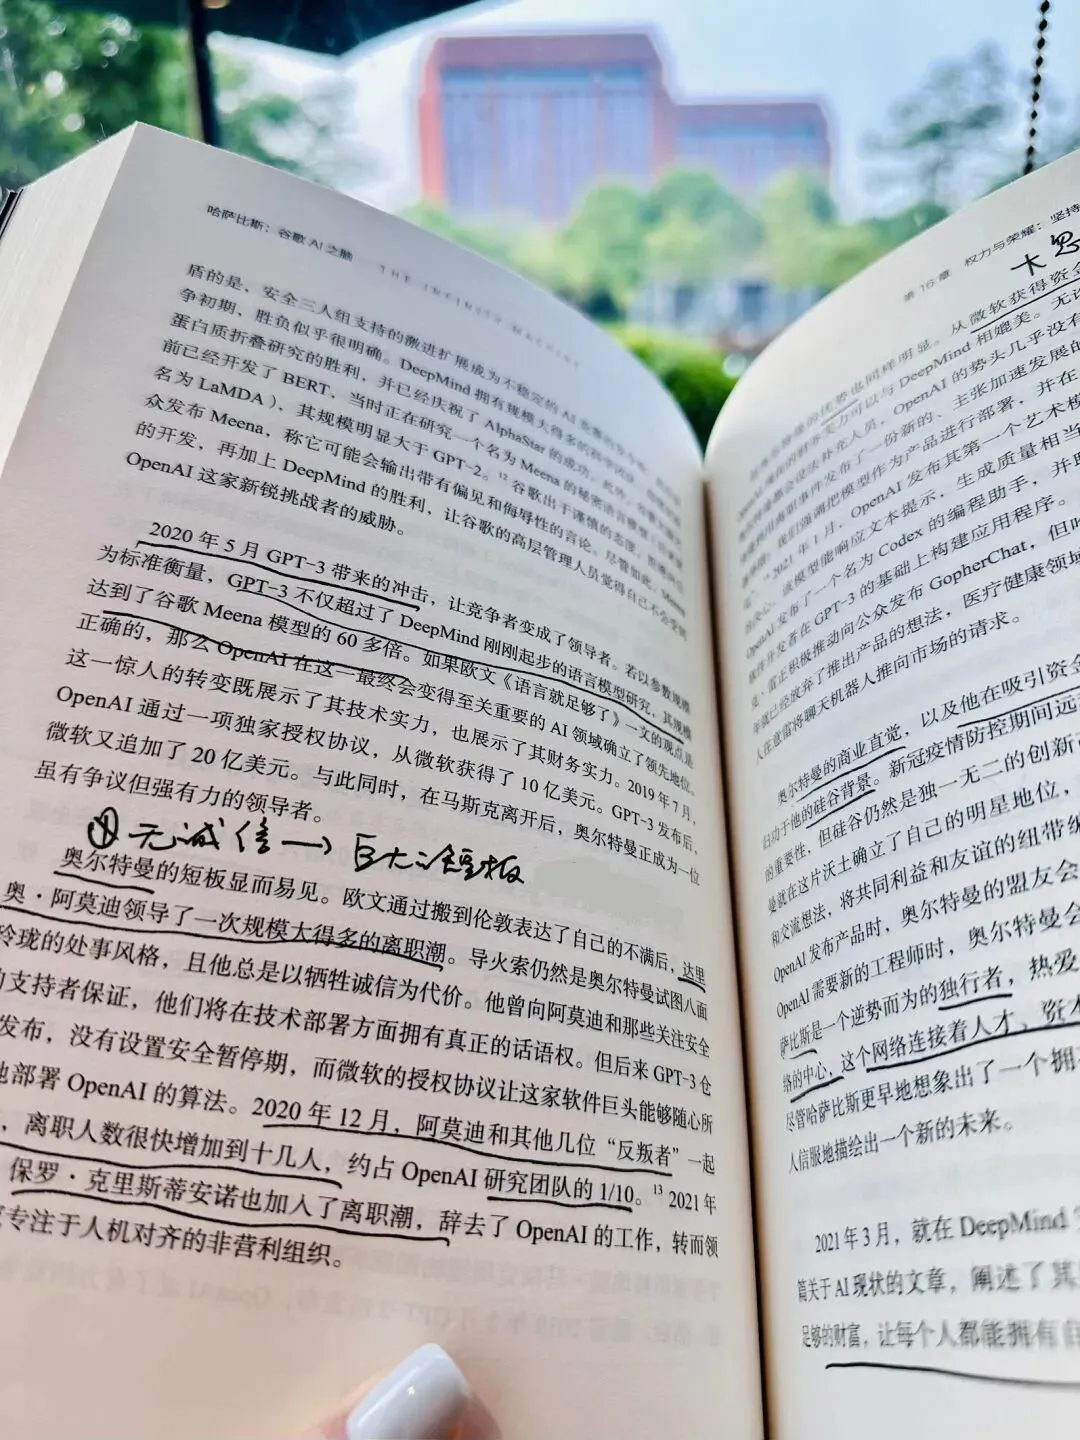 哈萨比斯：谷歌 AI 之脑 THE INFINITY MACHINE
盾的是，安全三人组支持的激进扩展成为不稳定的 AI 竞赛的
争初期，胜负似乎很明确。DeepMind 拥有规模大得多的科学团队，
蛋白质折叠研究的胜利，并已经庆祝了 AlphaStar 的成功。此外，谷歌
前已经开发了 BERT，当时正在研究一个名为 Meena 的秘密语言模型
名为 LaMDA），其规模明显大于 GPT-2。¹² 谷歌出于谨慎的态度，
众发布 Meena，称它可能会输出带有偏见和侮辱性的言论。尽管如此，Meena
的开发，再加上 DeepMind 的胜利，让谷歌的高层管理人员觉得自己不会受到
OpenAI 这家新锐挑战者的威胁。
2020 年 5 月 GPT-3 带来的冲击，让竞争者变成了领导者。若以参数规模
为标准衡量，GPT-3 不仅超过了 DeepMind 刚刚起步的语言模型研究，其规模
达到了谷歌 Meena 模型的 60 多倍。如果欧文《语言就足够了》一文的观点是
正确的，那么 OpenAI 在这一最终会变得至关重要的 AI 领域确立了领先地位。
这一惊人的转变既展示了其技术实力，也展示了其财务实力。2019 年 7 月，
OpenAI 通过一项独家授权协议，从微软获得了 10 亿美元。GPT-3 发布后，
微软又追加了 20 亿美元。与此同时，在马斯克离开后，奥尔特曼正成为一位
虽有争议但强有力的领导者。
① 无诚信 → 巨大短板
奥尔特曼的短板显而易见。欧文通过搬到伦敦表达了自己的不满后，达里
奥·阿莫迪领导了一次规模大得多的离职潮。导火索仍然是奥尔特曼试图八面
玲珑的处事风格，且他总是以牺牲诚信为代价。他曾向阿莫迪和那些关注安全
的支持者保证，他们将在技术部署方面拥有真正的话语权。但后来 GPT-3 仓
发布，没有设置安全暂停期，而微软的授权协议让这家软件巨头能够随心所
地部署 OpenAI 的算法。2020 年 12 月，阿莫迪和其他几位“反叛者”一起
，离职人数很快增加到十几人，约占 OpenAI 研究团队的 1/10。¹³ 2021 年
保罗·克里斯蒂安诺也加入了离职潮，辞去了 OpenAI 的工作，转而领
专注于人机对齐的非营利组织。
第 16 章 权力与荣耀：坚持
大忽
优势也同样明显。从微软获得资金
财务实力可以与 DeepMind 相媲美。无论
会设法补充人员，OpenAI 的势头几乎没有
离职事件发布了一份新的、主张加速发展的
我们强调把模型作为产品进行部署，并在
”2021 年 1 月，OpenAI 发布其第一个艺术模
该模型能响应文本提示，生成质量相当
OpenAI 发布了一个名为 Codex 的编程助手，并联
软件开发者在 GPT-3 的基础上构建应用程序。
正积极推动向公众发布 GopherChat，但哈
年就已经放弃了推出产品的想法，医疗健康领域
人在意雷将聊天机器人推向市场的请求。
奥尔特曼的商业直觉，以及他在吸引资金
归功于他的硅谷背景。新冠疫情防控期间远
的重要性，但硅谷仍然是独一无二的创新
曼就在这片沃土确立了自己的明星地位，
和交流想法，将共同利益和友谊的纽带编
OpenAI 发布产品时，奥尔特曼的盟友会
OpenAI 需要新的工程师时，奥尔特曼会
萨比斯是一个逆势而为的独行者，热爱
络的中心，这个网络连接着人才、资本
尽管哈萨比斯更早地想象出了一个拥
人信服地描绘出一个新的未来。
2021 年 3 月，就在 DeepMind
篇关于 AI 现状的文章，阐述了其
足够的财富，让每个人都能拥有自